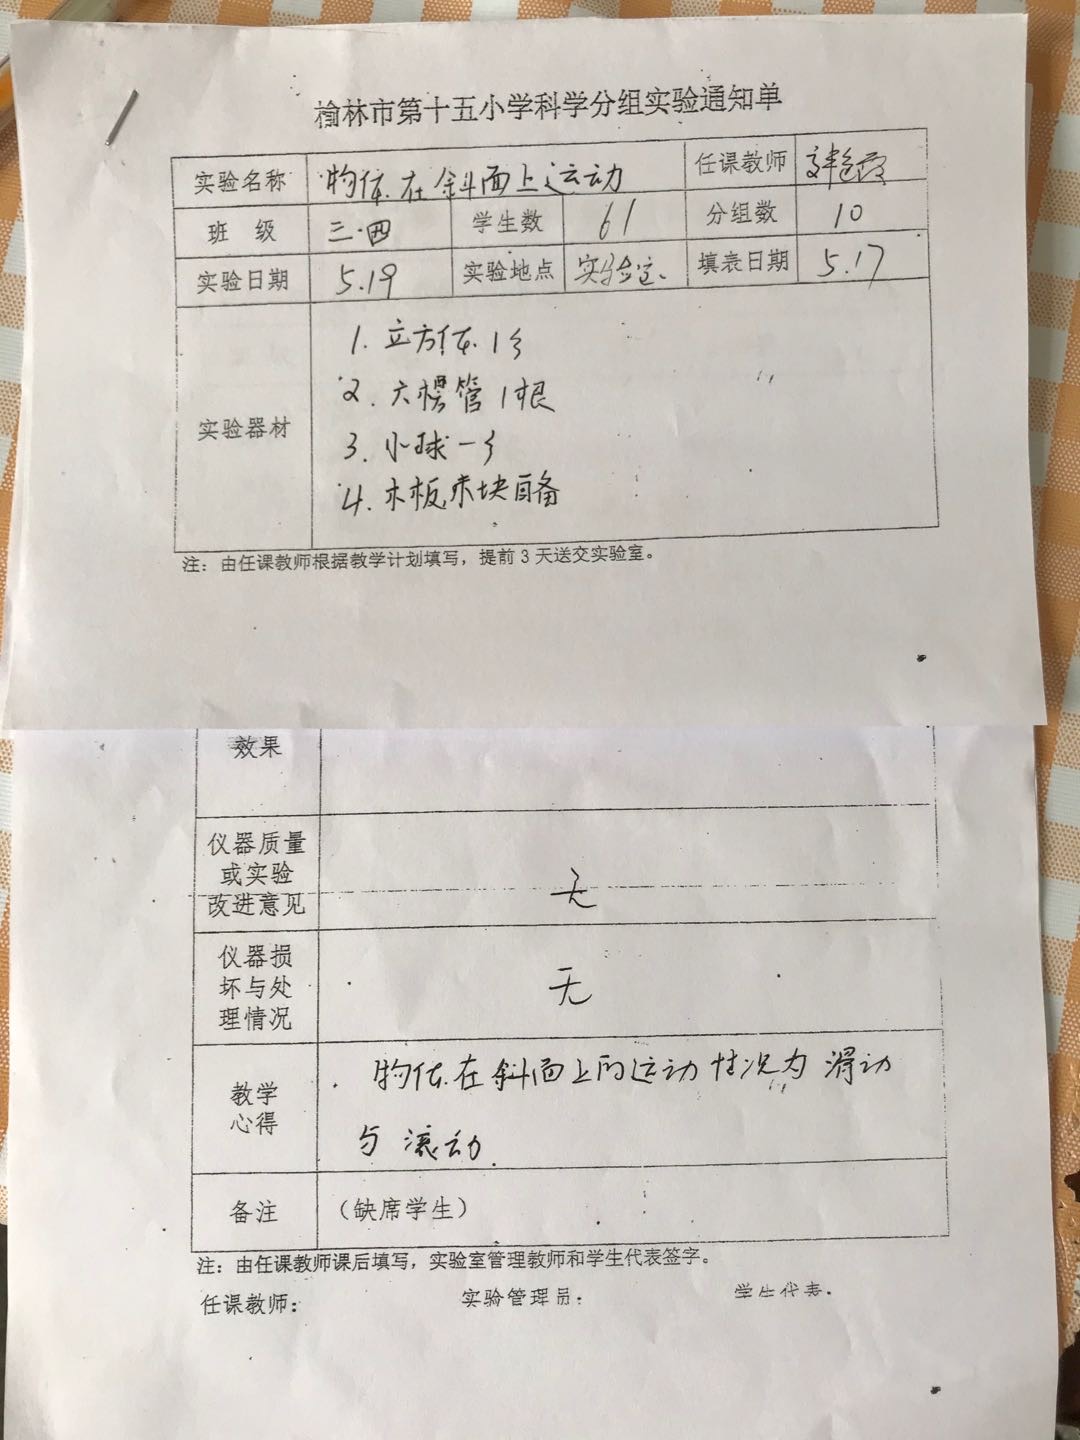 榆林市第十五小学科学分组实验通知单
实验名称 物体在斜面上运动 任课教师
班 级 三.四 学生数 61 分组数 10
实验日期 5.19 实验地点 实验室. 填表日期 5.17
实验器材
1. 立方体 1个
2. 六楞管 1根
3. 小球一个
4. 木板木块自备
注：由任课教师根据教学计划填写，提前3天送交实验室。
效果
仪器质量
或实验
改进意见
无
仪器损
坏与处
理情况
无
教学
心得
物体在斜面上的运动情况为滑动
与滚动.
备注 （缺席学生）
注：由任课教师课后填写，实验室管理教师和学生代表签字。
任课教师： 实验管理员： 学生代表：